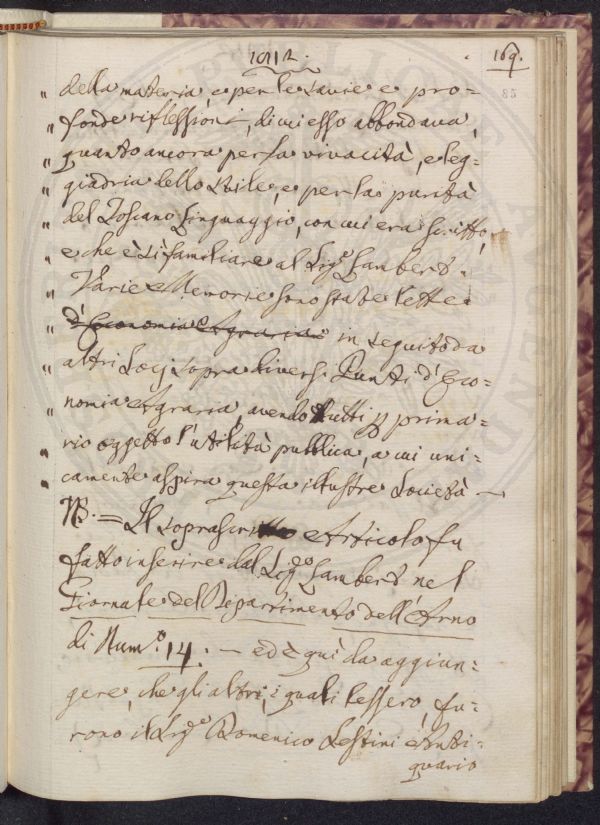 1812.
169.
" della materia, e per le savie e pro=
" fonde riflessioni, di cui esso abbondava,
" quanto ancora per la vivacità, e leg=
" giadria dello Stile, e per la purità
" del Toscano Linguaggio, con cui era scritto,
" e che è sì familiare al Sig.r Lambert.
" Varie Memorie sono state lette
" d'Economia Agraria in seguito da
" altri Socj sopra diversi Punti d'Eco=
" nomia Agraria, avendo tutti p prima=
" rio oggetto l'utilità pubblica, a cui uni=
" camente aspira questa illustre Società —
NB. = Il soprascritto Articolo fu
fatto inserire dal Sig.r Lambert nel
Giornale del Dipartimento dell'Arno
di Num.o 14. — ed è quì da aggiun=
gere, che gli altri, i quali lessero, fu=
rono il Sig.r Domenico Sestini Anti=
quario